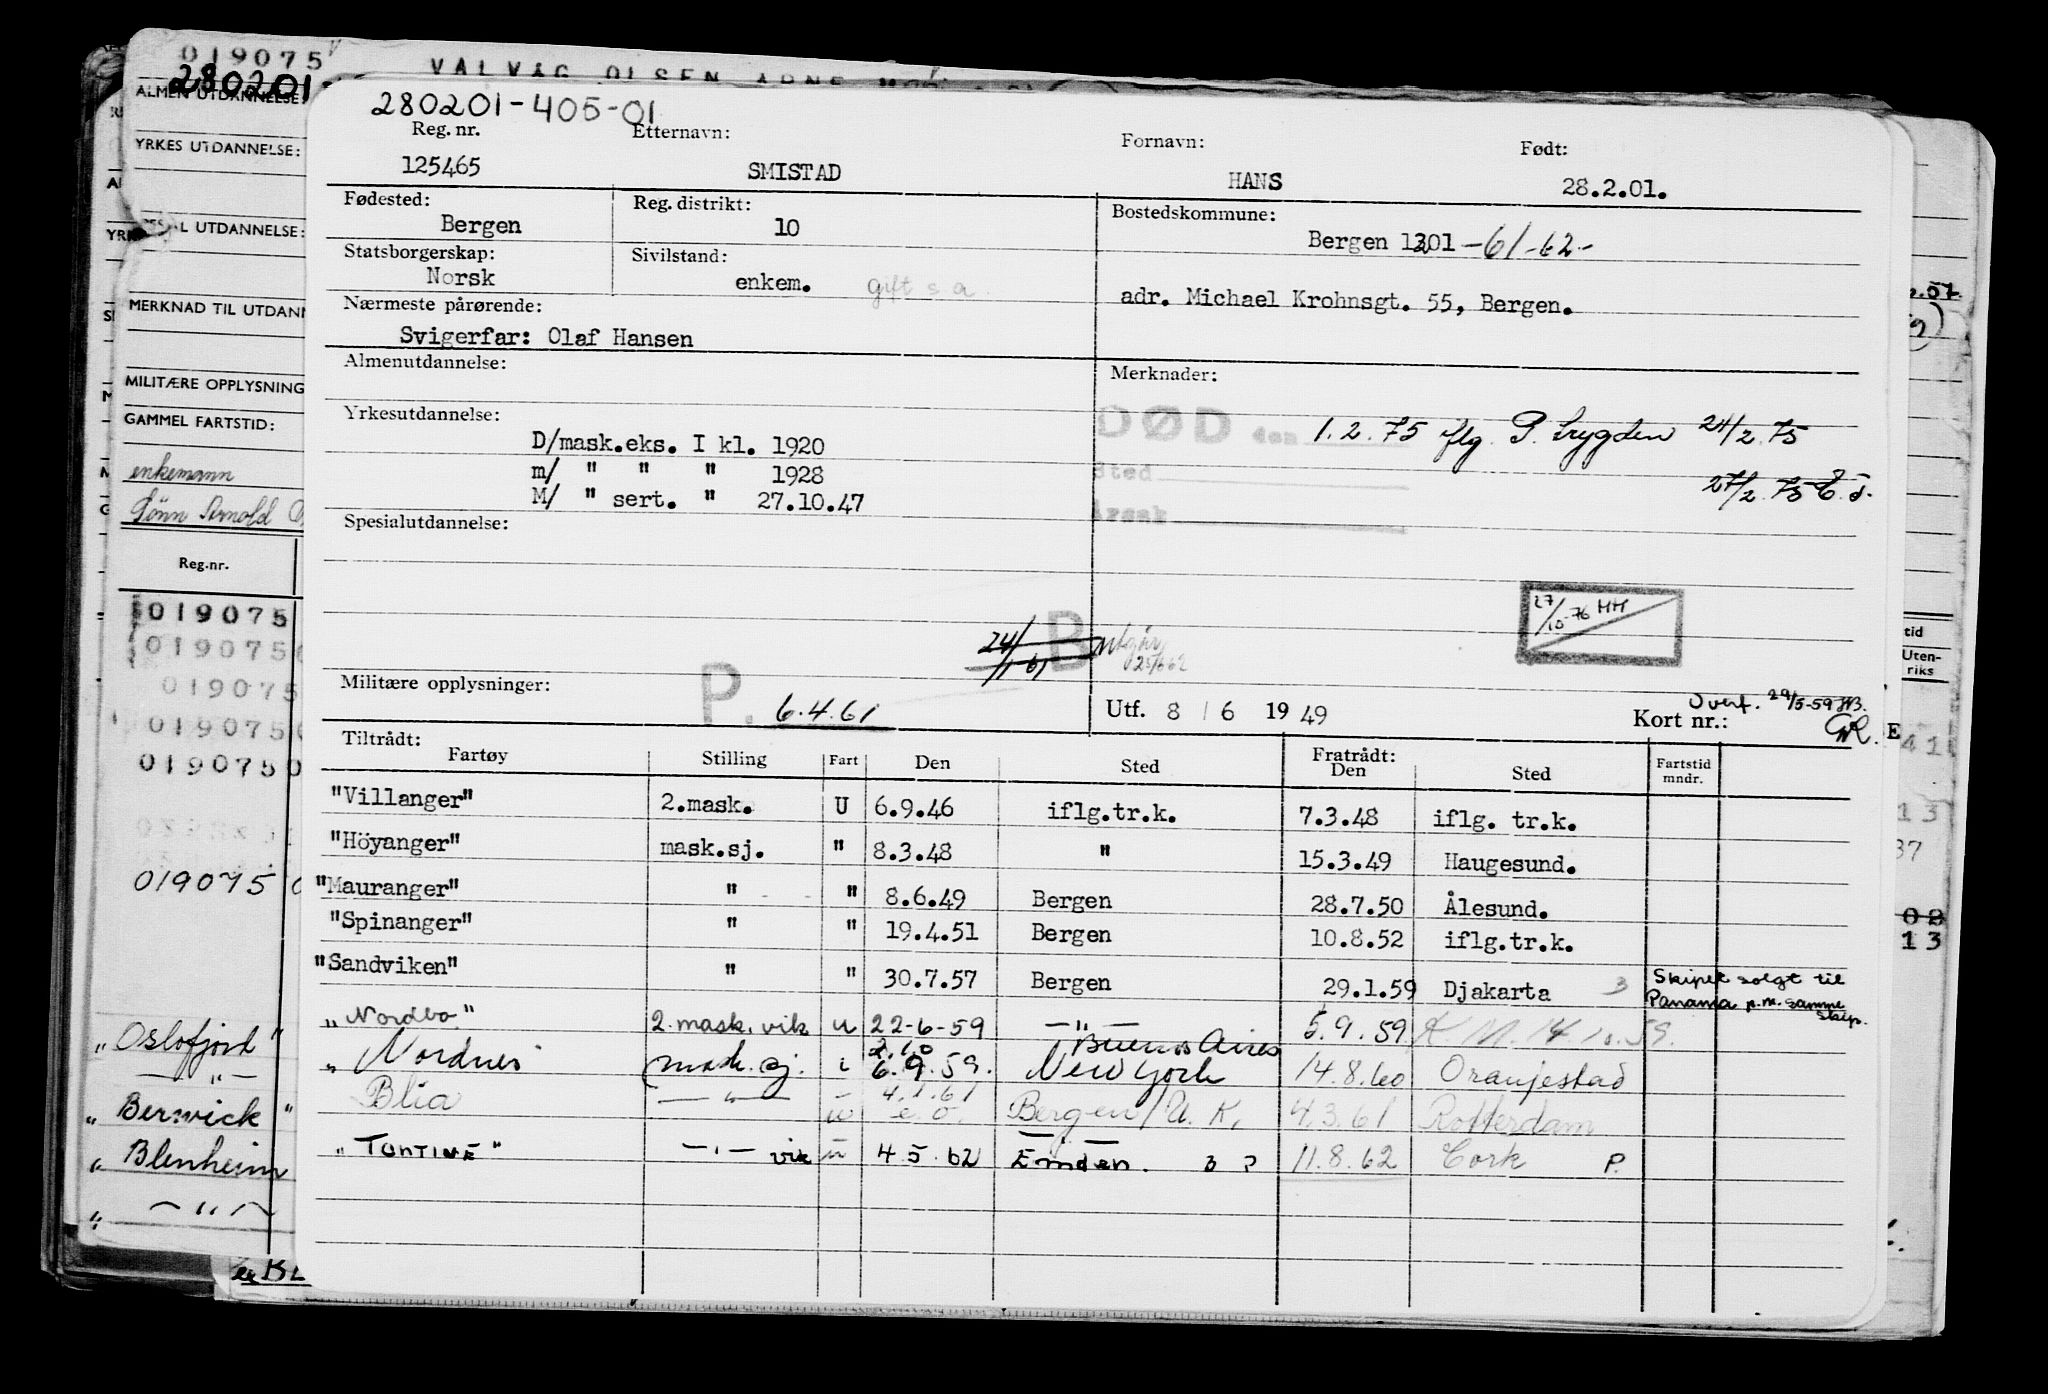 019075
VALVÅG OLSEN ARNE
280201
ALMEN UTDANNELSE:
YRKES UTDANNELSE:
UTDANNELSE:
MERKNAD TIL UTDAN
MILITÆRE OPPLYSNING
GAMMEL FARTSTID:
enkemann
Sønn Arnold
Reg.nr.
019075
019075
019075
019075
019075
019075
"Oslofjord"
— " —
"Berwick"
"Blenheim
280201-405-01
Reg. nr. Etternavn: Fornavn: Født:
125465 SMISTAD HANS 28.2.01.
Fødested: Reg. distrikt: Bostedskommune:
Bergen 10 Bergen 1301 -61-62-
Statsborgerskap: Sivilstand:
Norsk enkem. gift s.a.
adr. Michael Krohnsgt. 55, Bergen.
Nærmeste pårørende:
Svigerfar: Olaf Hansen
Almenutdannelse: Merknader:
Yrkesutdannelse:
DØD den 1.2.75 flg. P. trygden 24/2.75
D/mask.eks. I kl. 1920
m/ " " " 1928
Sted 27/2.75
M/ " sert. " 27.10.47
Årsak
Spesialutdannelse:
27/10-76 HH
24/1 61 B utgår
Militære opplysninger: P. 6.4.61
Utf. 8 / 6 1949 Kort nr.: Overf. 29/5-59
Tiltrådt: Fratrådt:
Fartøy Stilling Fart Den Sted Den Sted Fartstid mndr.
"Villanger" 2.mask. U 6.9.46 iflg.tr.k. 7.3.48 iflg. tr.k.
"Höyanger" mask.sj. " 8.3.48 " 15.3.49 Haugesund.
"Mauranger" " " 8.6.49 Bergen 28.7.50 Ålesund.
"Spinanger" " " 19.4.51 Bergen 10.8.52 iflg.tr.k.
"Sandviken" " " 30.7.57 Bergen 29.1.59 Djakarta 3 Skipet solgt til Panama p.m. samme skip.
"Nordbo" 2.mask. vik u 22-6-59 — " — 5.9.59
"Nordnes mask. sj. 2.10 6.9.59. Buenos Aires New York 14.8.60 Oranjestad
Blia — " — u 4.1.61 e.o. Bergen/U.K. 4.3.61 Rotterdam
"TONTINE" — " — vik u 4 5.62 Emden. 3 ? 11.8.62 Cork P.
tid
Uten-
riks
41
13
37
02
13